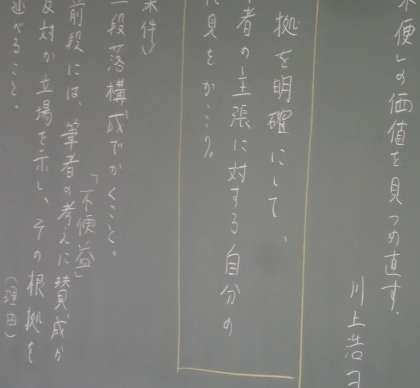 不便」の価値を見つめ直す。
川上浩司
拠を明確にして、
者の主張に対する自分の
意見をかこう。
条件)
二段落構成でかくこと。
「不便益」
前段には、筆者の考えに賛成か
反対か立場を示し、その根拠を
(理由)
述べること。